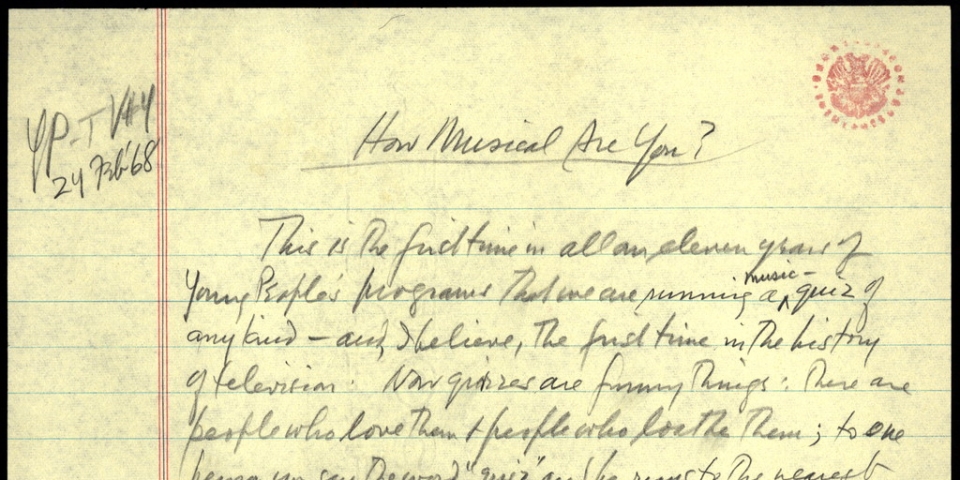 YP-T V#4
24 Feb '68
How Musical Are You?
This is the first time in all our eleven years of
Young People's programs that we are running a music-quiz of
any kind – and, I believe, the first time in the history
of television. Now quizzes are funny things: there are
people who love them & people who loathe them; to one
person you say the word "quiz" and he runs to the nearest